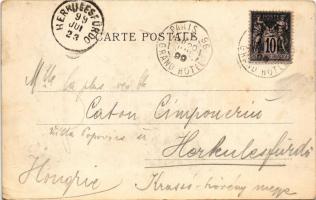 HERKULESFÜRDŐ
99
JUL
23
CARTE POSTALE
PARIS
99
GRAND HOTEL
10
GRAND HOTEL
Mlle
Caton Cimponeriu
Villa Popovics
Herkulesfürdő
Hongrie
Krassó-Szörény megye